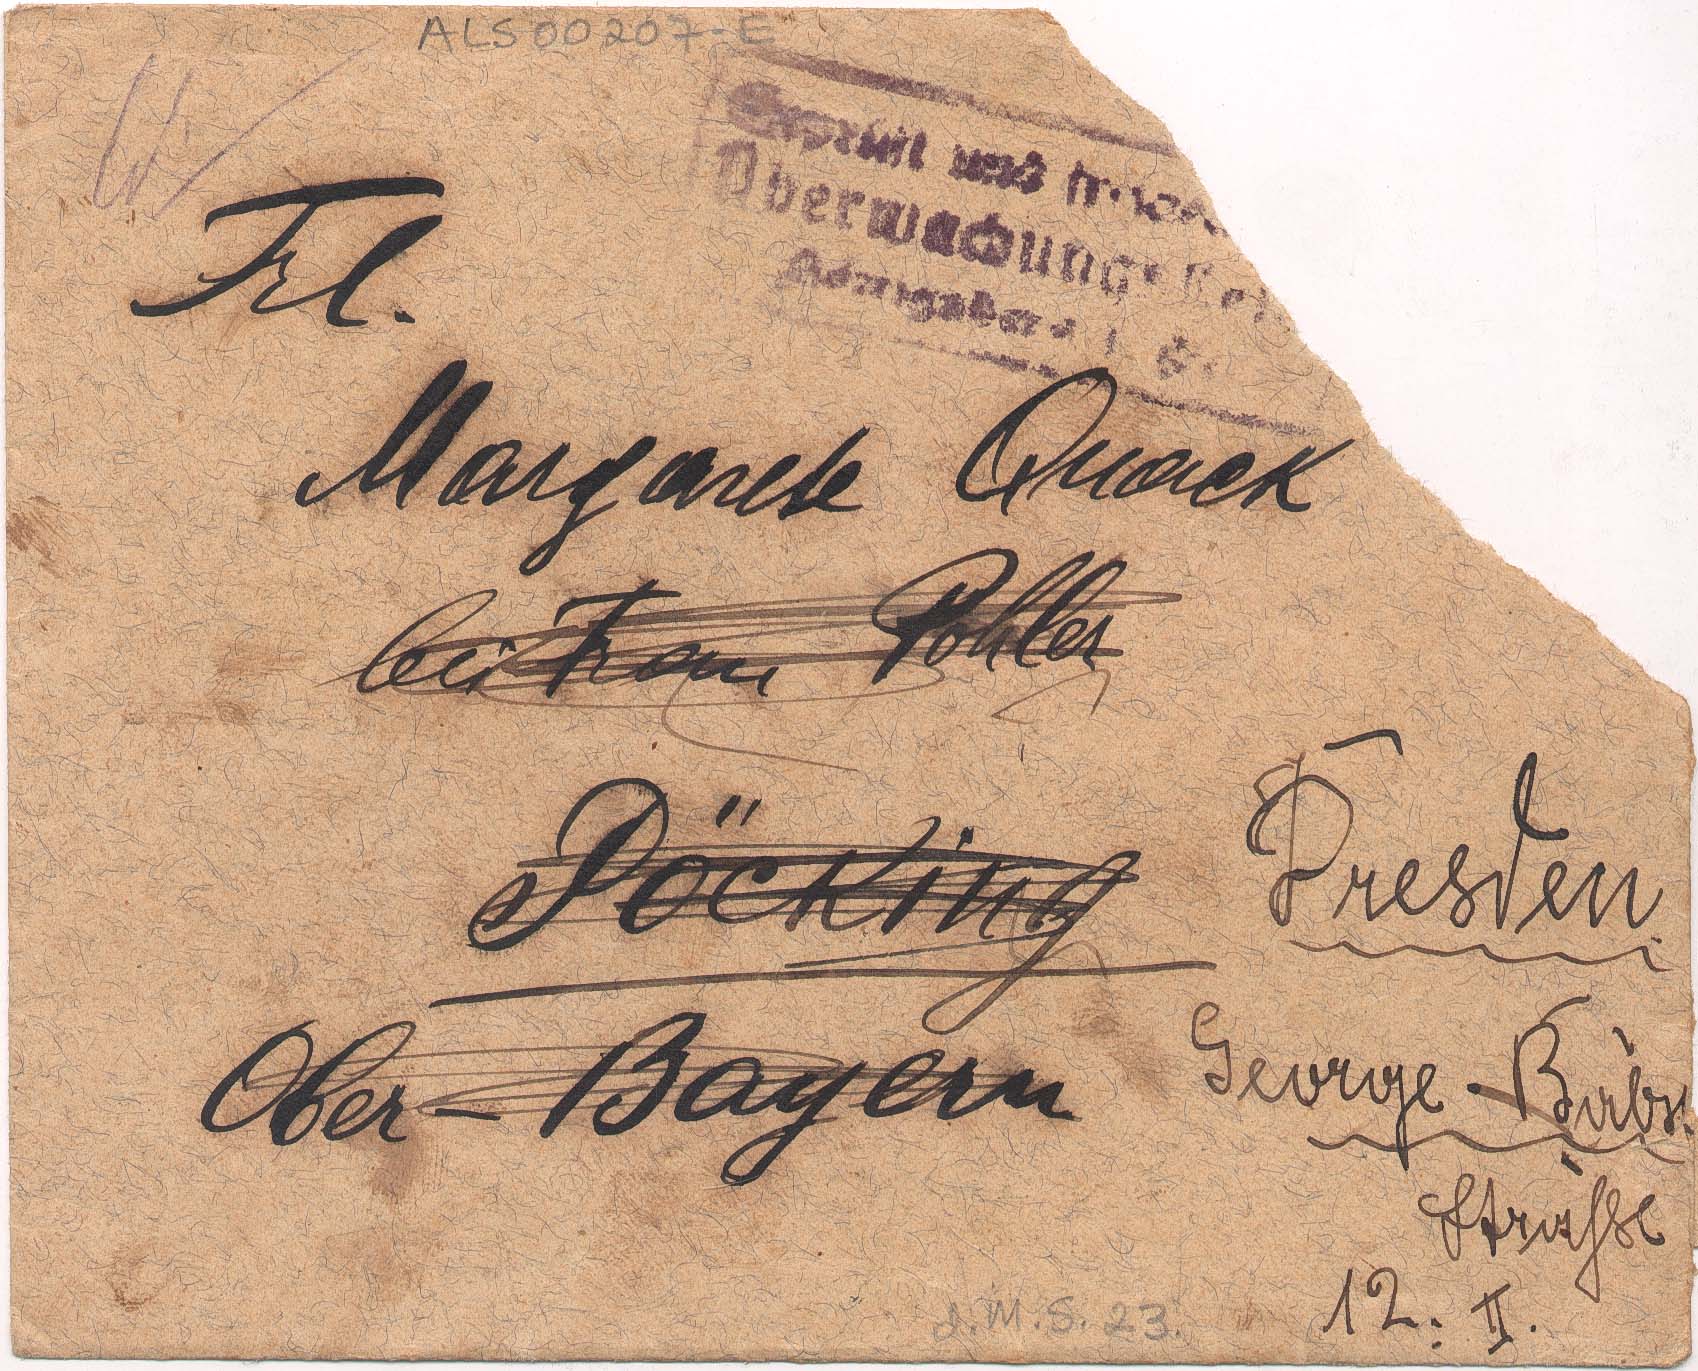 ALS00207-E
Geprüft und
Überwachungs
Königsberg i. Pr.
Frl.
Margarete Quack
bei Frau Pohler
Pöcking
Ober-Bayern
Dresden.
George-Bähr.
Straße
12. II.
J.M.S. 23.